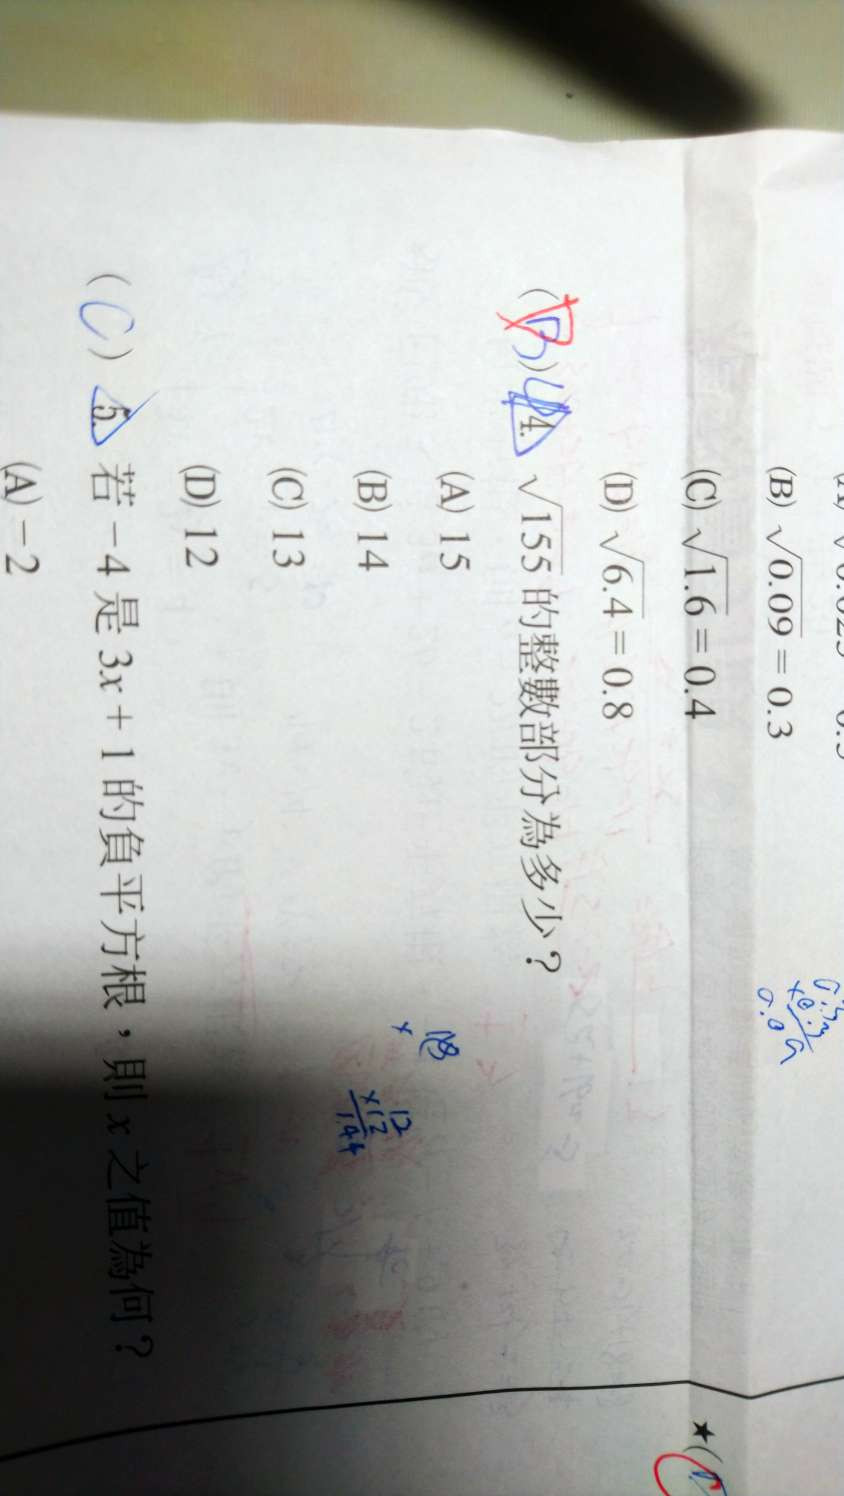 (B) √0.09 = 0.3
(C) √1.6 = 0.4
(D) √6.4 = 0.8
4. √155 的整數部分為多少？
(A) 15
(B) 14
(C) 13
(D) 12
( C ) 5. 若 −4 是 3x + 1 的負平方根，則 x 之值為何？
(A) −2
12
×12
144
★(